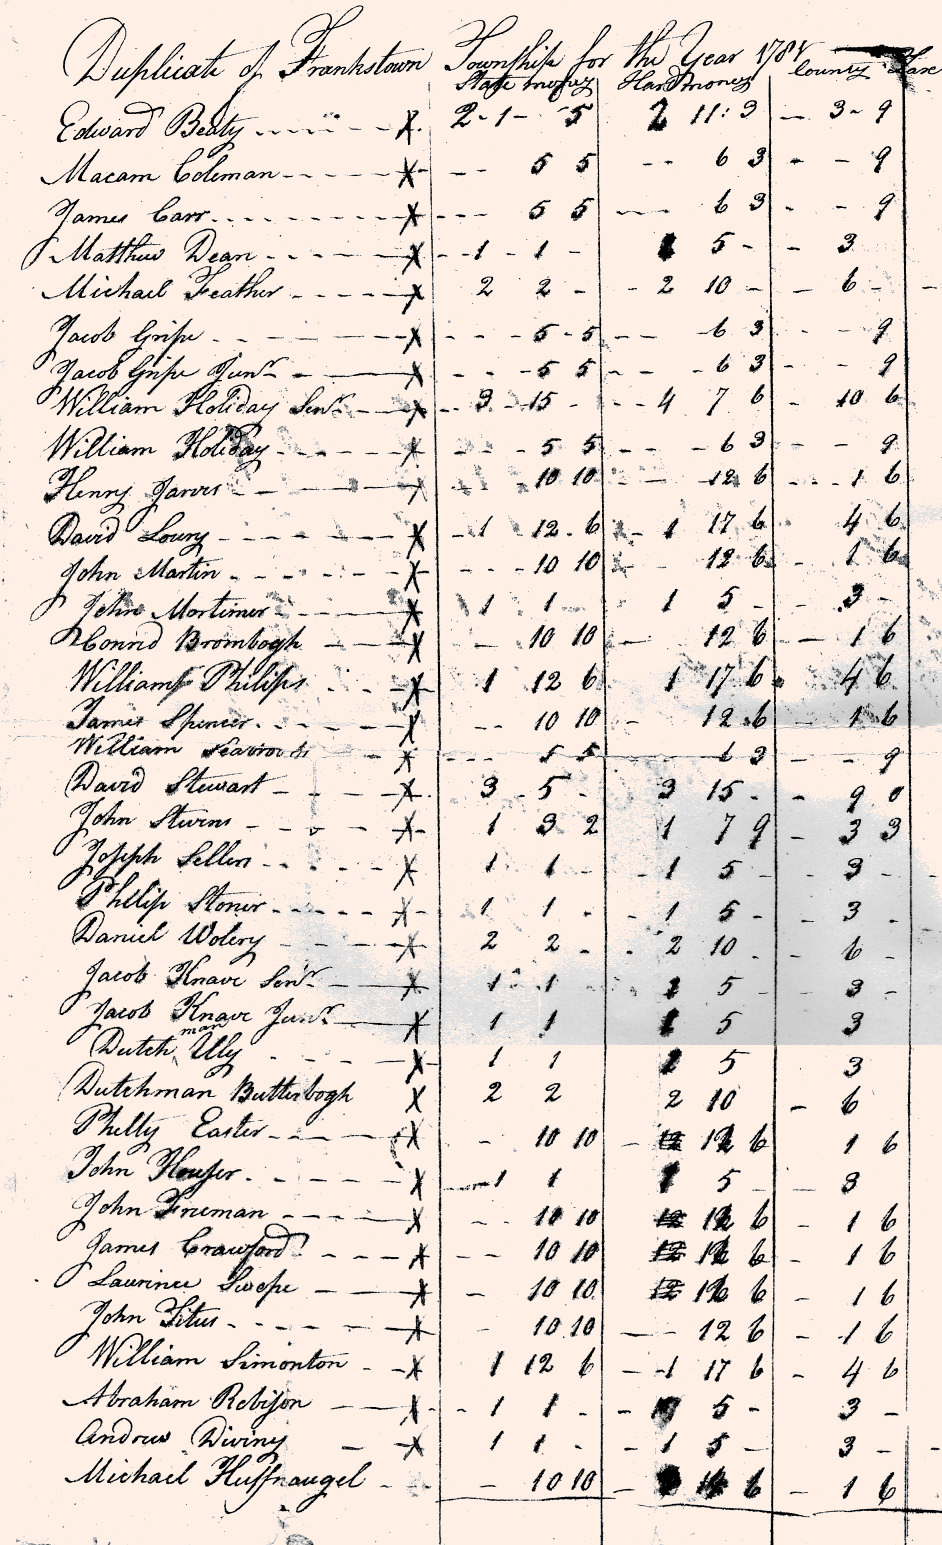 Duplicate of Frankstown Township for the Year 178
State money Hard money County Tax
Edward Beaty X 2 - 1 - 5 2 11 : 3 - 3 - 9
Macam Coleman X - - 5 5 - - 6 3 - - 9
James Carr X - - - 5 5 - - 6 3 - - 9
Matthew Dean X - - 1 - 1 - 1 5 - - 3
Michael Feather X 2 2 - - 2 10 - - 6 - -
Jacob Gripe X - - - 5 - 5 - - - 6 3 - - 9
Jacob Gripe Junr X - - - 5 5 - - - 6 3 - - 9
William Holiday Senr X - - 3 - 15 - - - 4 7 6 - 10 6
William Holiday X - - - 5 5 - - - 6 3 - - 9
Henry Jarvis X - - 10 10 - - 12 6 - - - 1 6
David Lowry X - 1 12 - 6 - 1 17 6 - 4 6
John Martin X - - - 10 10 - 12 6 - 1 6
John Mortimer X 1 1 - 1 5 - - 3 -
Conrad Brombogh X - 10 10 - 12 6 - 1 6
William Philips X 1 12 6 1 17 6 - 4 6
James Spencer X - - 10 10 - 12 6 - 1 6
William X - - - 5 5 6 3 - - 9
David Stewart X 3 - 5 - 3 15 - - 9 0
John Stivins X 1 3 2 1 7 9 - 3 3
Joseph Sellers X 1 1 - - 1 5 - - 3 -
Philip Stoner X 1 1 - - 1 5 - - 3 -
Daniel Wolery X 2 2 - - 2 10 - - 6 -
Jacob Knave Senr X 1 1 1 5 - - 3 -
Jacob Knave Junr X 1 1 1 5 3
Dutch man Ully X 1 1 1 5 3
Dutchman Butterbogh X 2 2 2 10 - 6
Philty Easter X - 10 10 - 12 12 6 1 6
John Houser X 1 1 1 5 - - 3
John Freeman X - - 10 10 12 12 6 - 1 6
James Crawford X - - 10 10 12 12 6 - 1 6
Laurince Swope X - 10 10 12 12 6 - 1 6
John Titus X - 10 10 - 12 6 - 1 6
William Simonton X 1 12 6 - 1 17 6 - 4 6
Abraham Robison X - 1 1 - - 5 - 3 -
Andrew Diviny X 1 1 - - 1 5 - 3 - -
Michael Huffnaugel - - 10 10 - 6 - 1 6